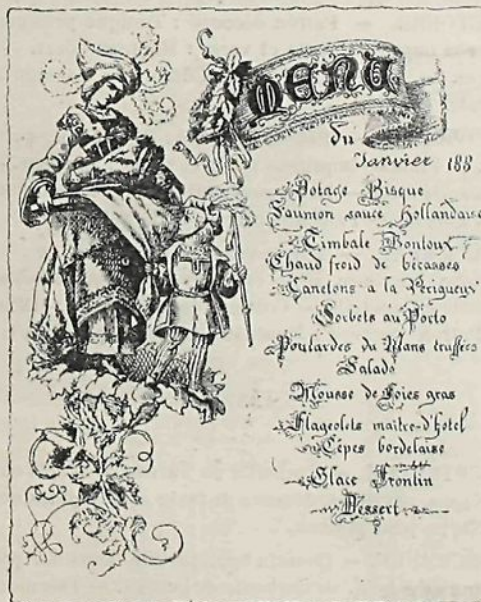 MENU
du
Janvier 188
Potage Bisque
Saumon sauce Hollandaise
Timbale Pontoux
Chaud froid de bécasses
Canetons a la Périgueux
Sorbets au Porto
Poulardes du Mans truffées
Salade
Mousse de Foies gras
Flageolets maitre-d'hotel
Cèpes bordelaise
Glace Frontin
Dessert